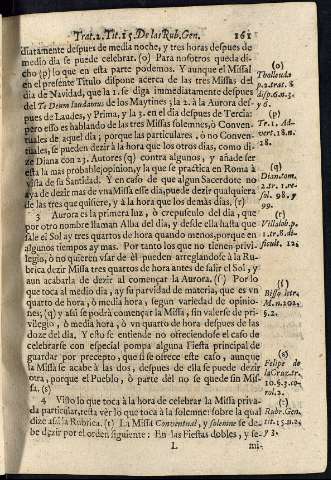 Trat.2. Tit.15. De las Rub. Gen. 161
diatamente despues de media noche, y tres horas despues de
medio dia se puede celebrar. (o) Para nosotros queda di-
cho (p) lo que en esta parte podemos. Y aunque el Missal
en el presente Titulo dispone acerca de las tres Missas del
dia de Navidad, que la 1. se diga immediatamente despues
del Te Deum laudamus de los Maytines; la 2. à la Aurora des-
pues de Laudes, y Prima, y la 3. en el dia despues de Tercia:
pero esso es hablando de las tres Missas solemnes, ò Conven-
tuales de aquel dia; porque las particulares, ò no Conven-
tuales, se pueden dezir à la hora que los otros dias, como di-
ze Diana con 23. Autores (q) contra algunos, y añade ser
esta la mas probable opinion, y la que se practica en Roma à
vista de su Santidad. Y en caso de que algun Sacerdote no
aya de dezir mas de vna Missa esse dia, puede dezir qualquiera
de las tres que quisiere, y à la hora que los demàs dias. (r)
3 Aurora es la primera luz, ò crepusculo del dia, que
por otro nombre llaman Alba del dia, y desde ella hasta que
sale el Sol ay tres quartos de hora quando menos, porque en
algunos tiempos ay mas. Por tanto los que no tienen privi-
legio, ò no quieren vsar de èl pueden arreglandose à la Ru-
brica dezir Missa tres quartos de hora antes de salir el Sol, y
aun acabarla de dezir al començar la Aurora. (s) Por lo
que toca al medio dia, ay su parvidad de materia, que es vn
quarto de hora, ò media hora, segun variedad de opinio-
nes; (q) y assi se podrà començar la Missa, sin valerse de pri-
vilegio, ò media hora, ò vn quarto de hora despues de las
doze del dia. Y esto se entiende no ofreciendose el caso de
celebrarse con especial pompa alguna Fiesta principal de
guardar por precepto, que si se ofrece este caso, aunque
la Missa se acabe à las dos, despues de ella se puede dezir
otra, porque el Pueblo, ò parte dèl no se quede sin Mis-
sa. (s)
4 Visto lo que toca à la hora de celebrar la Missa priva-
da particular, resta vèr lo que toca à la solemne: sobre la qual
dize assi la Rubrica. (t) La Missa Conventual, y solemne se de-
be dezir por el orden siguiente: En las Fiestas dobles, y se-
L mi-
(o)
p.2. trat. 8
disp. 6. n. 3.
y 6.
(p)
Tr. 1. Ad-
vert. 18. n.
28.
(q)
Dian. tom.
2. tr. 1. re-
sol. 98. y
99.
(r)
Villalob. p.
1. tr. 8. di-
ficult. 12.
(s)
M. n. 202.
5. 2.
(s)
Felipe de
la Cruz. tr.
(t)
Rubr. Gen.
tit. 15. n. 2.
y 3.